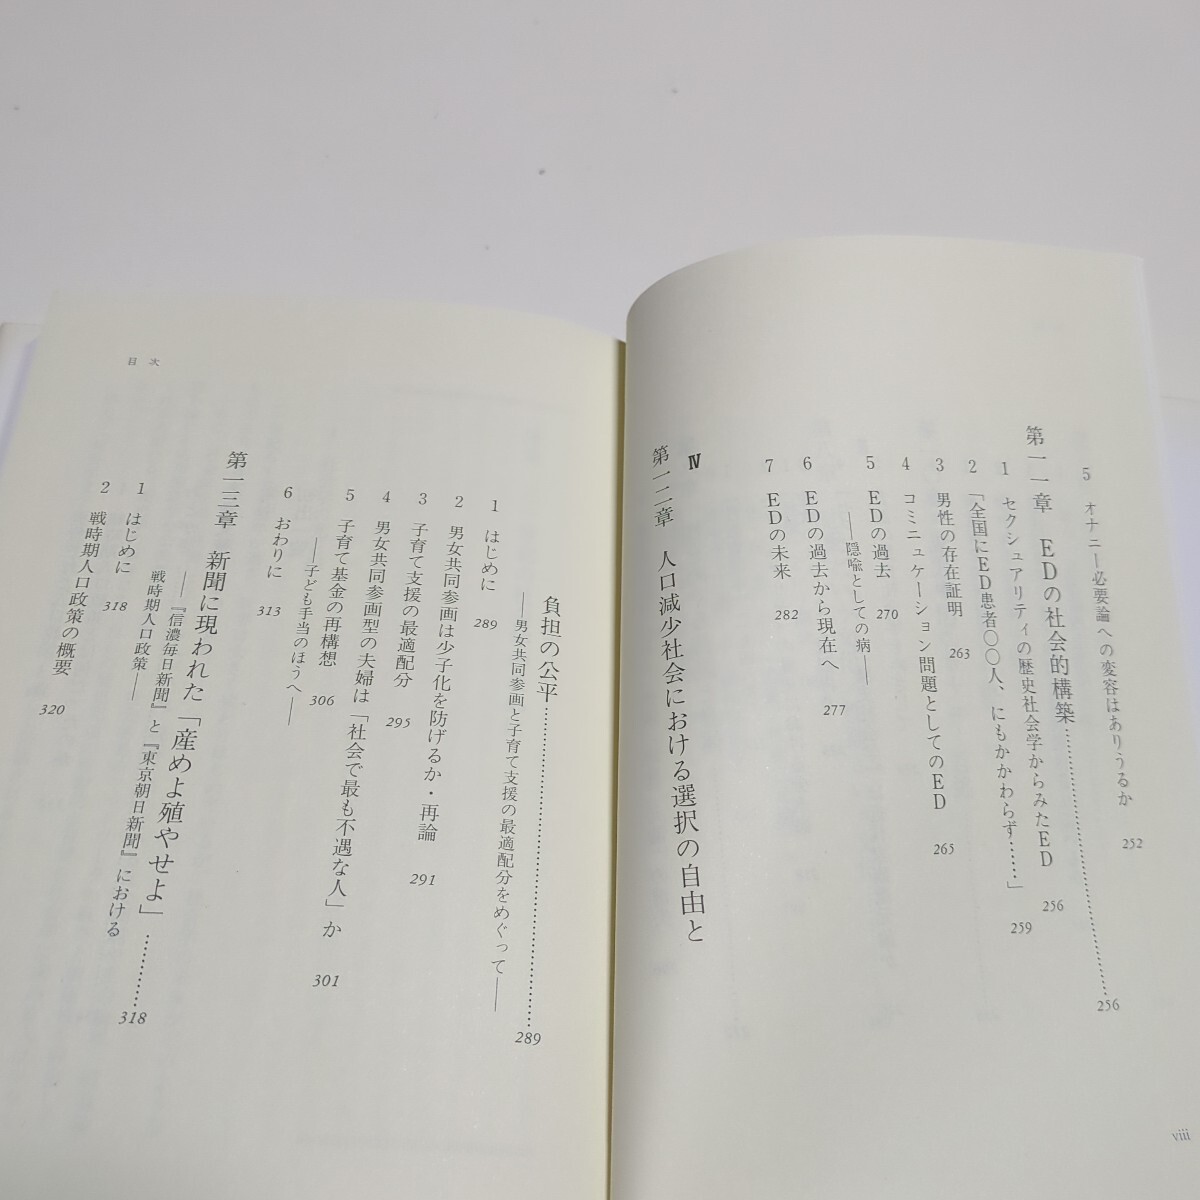 5 オナニー必要論への変容はありうるか 252
第一一章 EDの社会的構築…………………… 256
1 セクシュアリティの歴史社会学からみたED 256
2 「全国にED患者〇〇人、にもかかわらず……」 259
3 男性の存在証明 263
4 コミュニケーション問題としてのED 265
5 EDの過去 270
――隠喩としての病――
6 EDの過去から現在へ 277
7 EDの未来 282
Ⅳ
第一二章 人口減少社会における選択の自由と
viii
目次
負担の公平…………………… 289
――男女共同参画と子育て支援の最適配分をめぐって――
1 はじめに 289
2 男女共同参画は少子化を防げるか・再論 291
3 子育て支援の最適配分 295
4 男女共同参画型の夫婦は「社会で最も不遇な人」か 301
5 子育て基金の再構想 306
――子ども手当のほうへ――
6 おわりに 313
第一三章 新聞に現われた「産めよ殖やせよ」………… 318
――『信濃毎日新聞』と『東京朝日新聞』における
戦時期人口政策――
1 はじめに 318
2 戦時期人口政策の概要 320